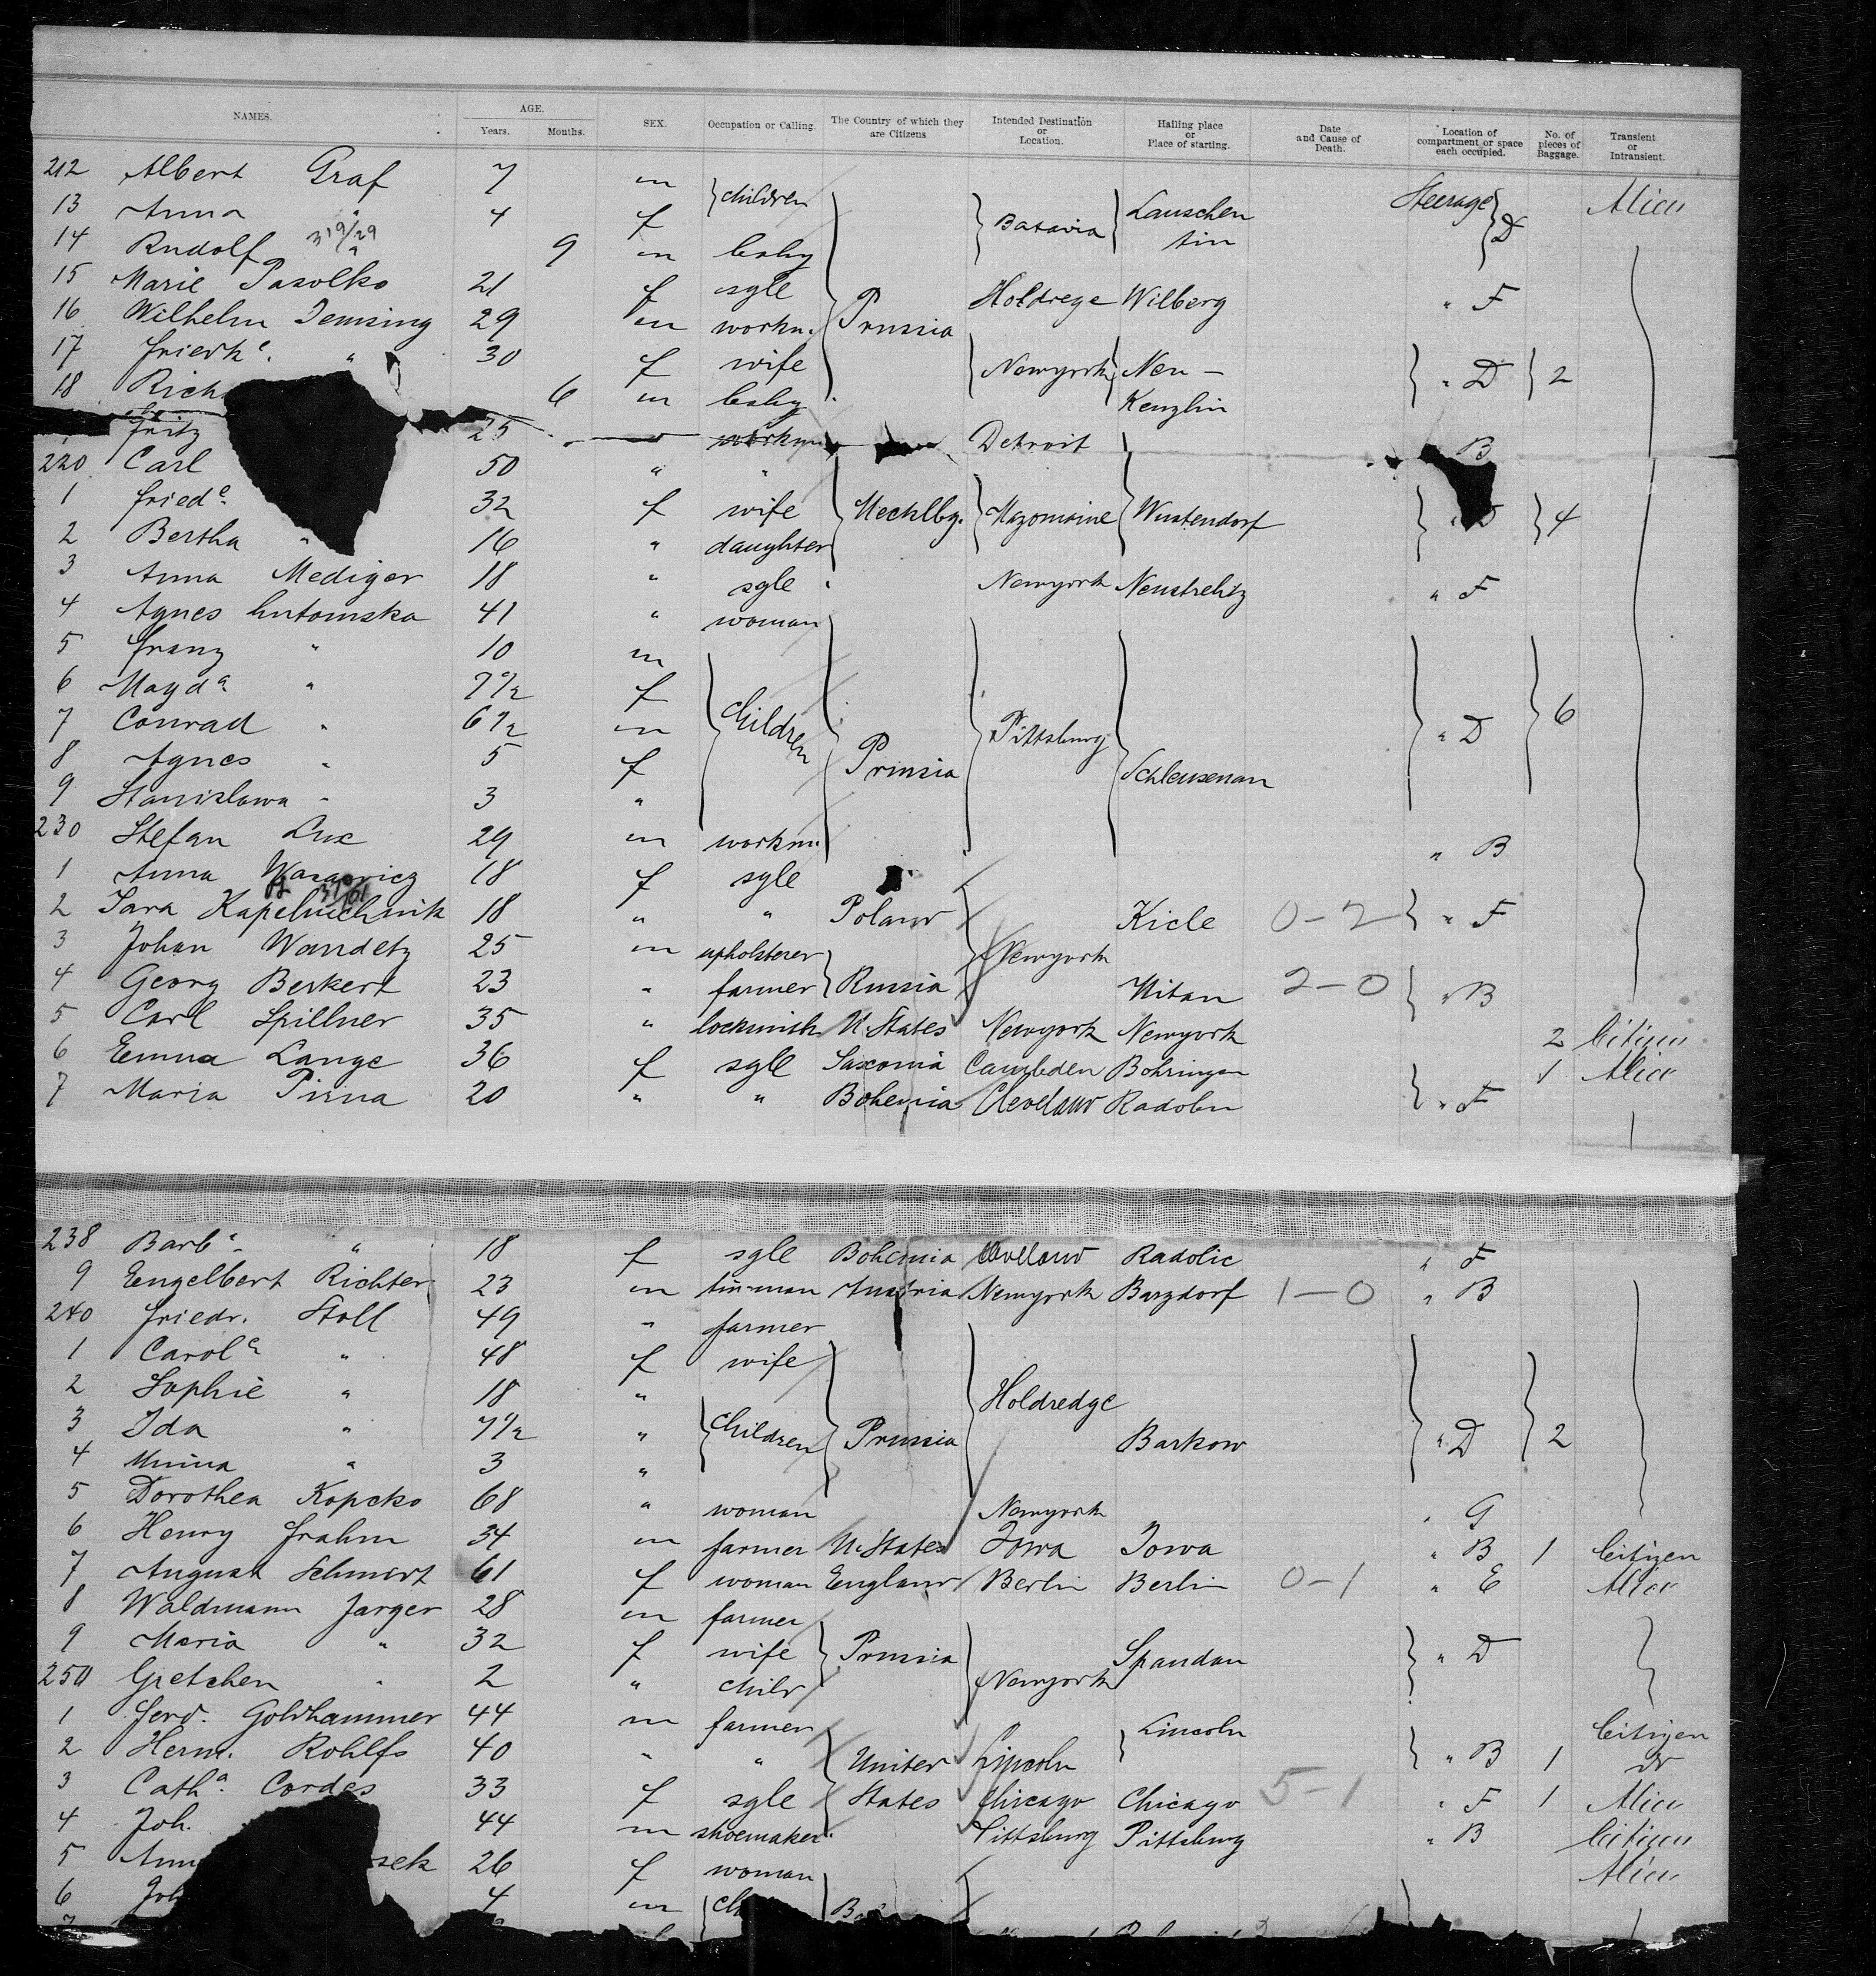 NAMES. AGE. Years. Months. SEX. Occupation or Calling. The Country of which they are Citizens Intended Destination or Location. Hailing place or Place of starting. Date and Cause of Death. Location of compartment or space each occupied. No. of pieces of Baggage. Transient or Intransient.
212 Albert Graf 7 m } children Steerage Alien
13 Anna " 4 f Batavia Lauschen tin D
14 Rudolf " 319/29 9 m baby
15 Marie Pasolke 21 f sgle Prussia Holdrege Wilberg " F
16 Wilhelm Demsing 29 m workm.
17 Friedke. " 30 f wife Newyork Neu- " D 2
18 Rich 6 m baby Kenzlin
Fritz 25 workm Detroit B
220 Carl 50 " "
1 Friede. 32 f wife Mecklbg. Mazomaine Wustendorf " D 4
2 Bertha " 16 " daughter
3 Anna Mediger 18 " sgle Newyork Neustrelitz " F
4 Agnes Lutomska 41 " woman
5 Franz " 10 m
6 Magda " 7 1/2 f
7 Conrad " 6 1/2 m children Pittsburg " D 6
8 Agnes " 5 f Prussia Schleusenau
9 Stanislawa " 3 "
230 Stefan Lux 29 m workm. " B
1 Anna 18 f sgle
2 Sara Kapeluschnik 18 " " Poland Kicle 0-2 " F
3 Johan Wandetz 25 m upholsterer Newyork
4 Georg Berkert 23 " farmer Russia Mitau 2-0 " B
5 Carl Spillner 35 " locksmith U. States Newyork Newyork 2 Citizen
6 Emma Lange 36 f sgle Saxonia Cambden Bohringen 1 Alien
7 Maria Pirna 20 " " Bohemia Cleveland Radolin " F
238 Barba. " 18 f sgle Bohemia Cleveland Radolic " F
9 Engelbert Richter 23 m tin-man Austria Newyork Barzdorf 1-0 " B
240 Friedr. Stoll 49 " farmer
1 Carola " 48 f wife
2 Sophie " 18 " Holdredge
3 Ida " 7 1/2 " children Prussia Barkow " D 2
4 Minna " 3 "
5 Dorothea Kopcko 68 " woman Newyork " G
6 Henry Frahm 34 m farmer U. States Iowa Iowa " B 1 Citizen
7 August Schmidt 61 f woman England Berlin Berlin 0-1 " E Alien
8 Waldmann Jarger 28 m farmer
9 Maria " 32 f wife Prussia Spandau " D
250 Gretchen " 2 " child Newyork
1 Ferd. Goldhammer 44 m farmer Lincoln Citizen
2 Herm. Rohlfs 40 " " United Lincoln " B 1 do
3 Catha. Cordes 33 f sgle States Chicago Chicago 5-1 " F 1 Alien
4 Joh. 44 m shoemaker Pittsburg Pittsburg " B Citizen
5 sek 26 f woman Alien
6 4 m